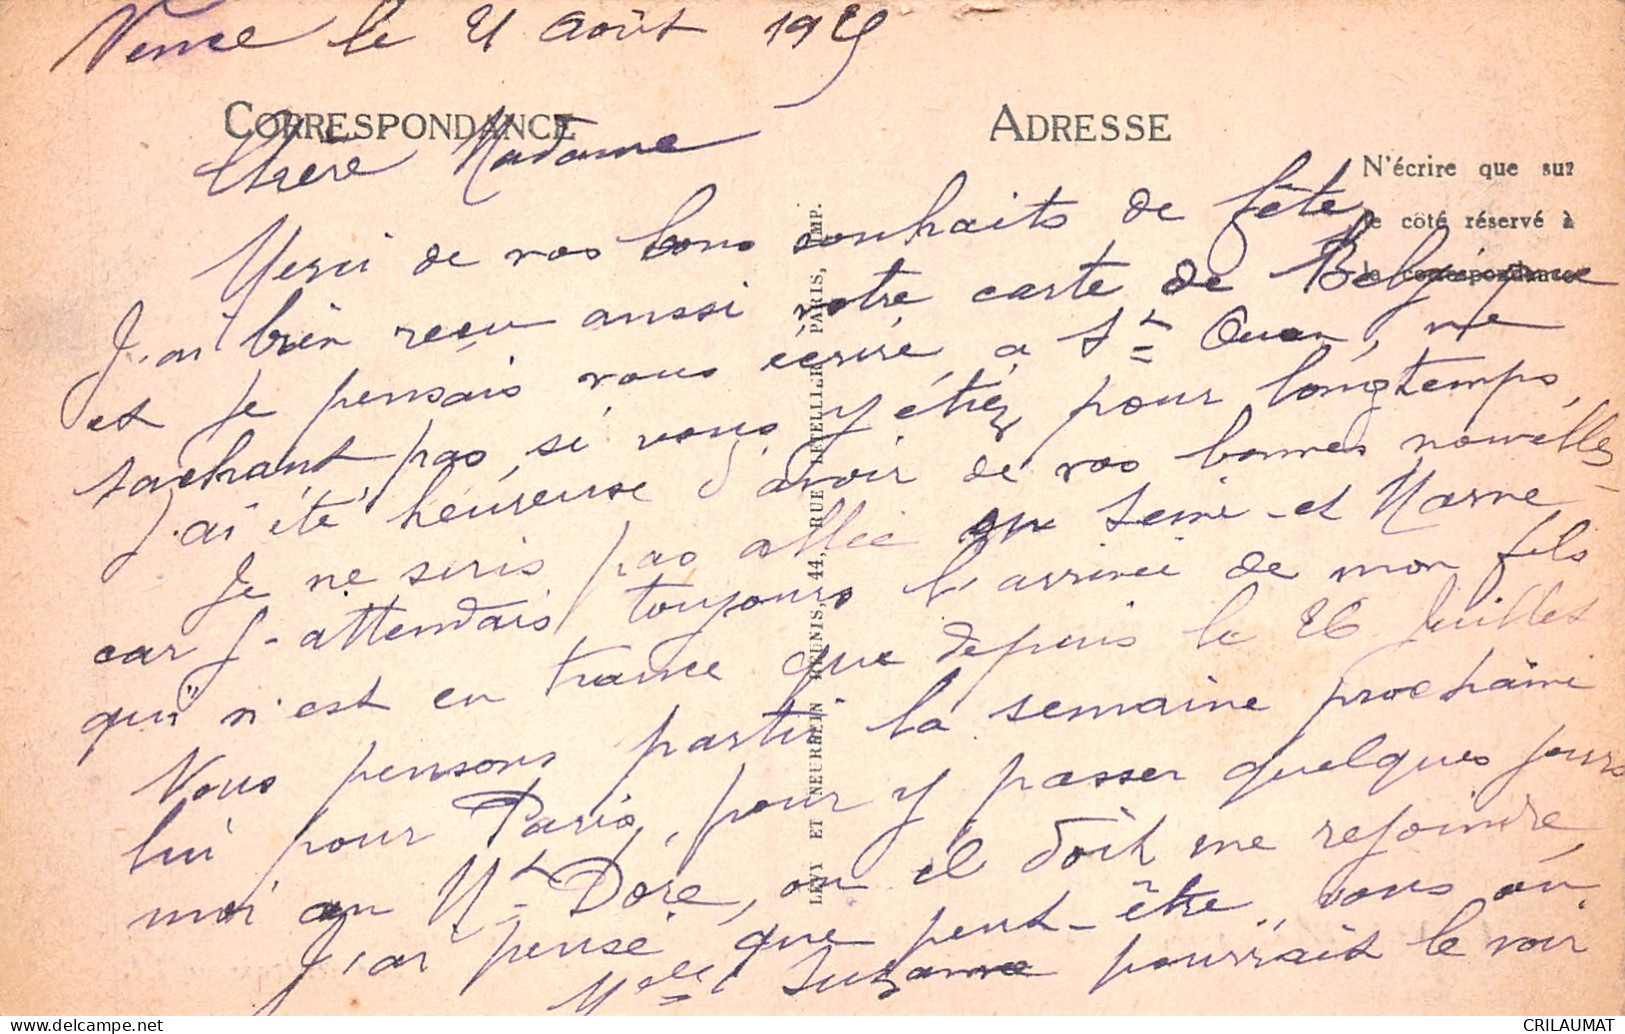 Vence le 21 Août 19
CORRESPONDANCE
ADRESSE
N'écrire que sur
le côté réservé à
la correspondance
Chère Madame
Merci de vos bons souhaits de fête,
J'ai bien reçu aussi votre carte de Belgique
et je pensais vous écrire à St Ouen, ne
sachant pas si vous y étiez pour longtemps,
J'ai été heureuse d'avoir de vos bonnes nouvelles
Je ne suis pas allée en Seine-et Marne
car j'attendais toujours l'arrivée de mon fils
qui n'est en France que depuis le 26 Juillet
Nous pensons partir la semaine prochaine
lui pour Paris, pour y passer quelques jours
moi au Mt Dore, ou il doit me rejoindre,
J'ai pensé que peut-être, vous ou
Melle Suzanne pourrait le voir
LEVY ET NEURDEIN REUNIS, 44, RUE LETELLIER, PARIS, IMP.
CRILAUMAT